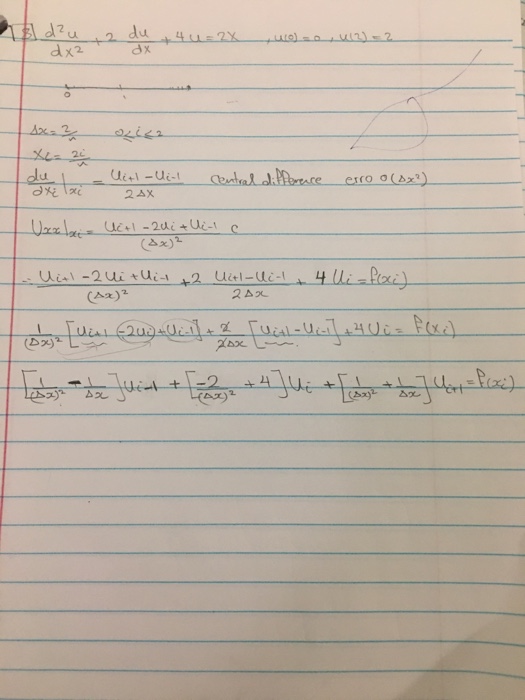 3] d²u/dx² + 2 du/dx + 4u = 2x , u(0)=0, u(2)=2
0
Δx = 2/n 0≤i≤2
xi = 2i/n
du/dxi |xi = (Ui+1 - Ui-1)/(2Δx) Central difference erro o(Δx²)
Uxx|xi = (Ui+1 - 2Ui + Ui-1)/(Δx)² c
∴ (Ui+1 - 2Ui + Ui-1)/(Δx)² + 2 (Ui+1 - Ui-1)/(2Δx) + 4Ui = f(xi)
1/(Δx)² [Ui+1 - 2Ui + Ui-1] + 2/(2Δx) [Ui+1 - Ui-1] + 4Ui = f(xi)
[1/(Δx)² - 1/Δx] Ui-1 + [-2/(Δx)² + 4] Ui + [1/(Δx)² + 1/Δx] Ui+1 = f(xi)